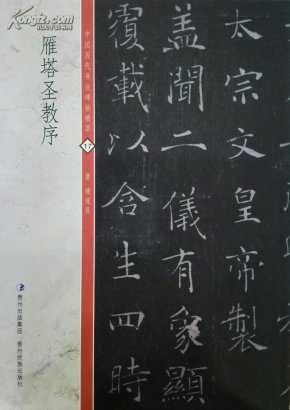 Kongfz.com
孔夫子旧书网
雁塔圣教序
17
唐 褚遂良
贵州出版集团
贵州民族出版社
太宗文皇帝製
盖聞二儀有象顯
覆載以含生四時